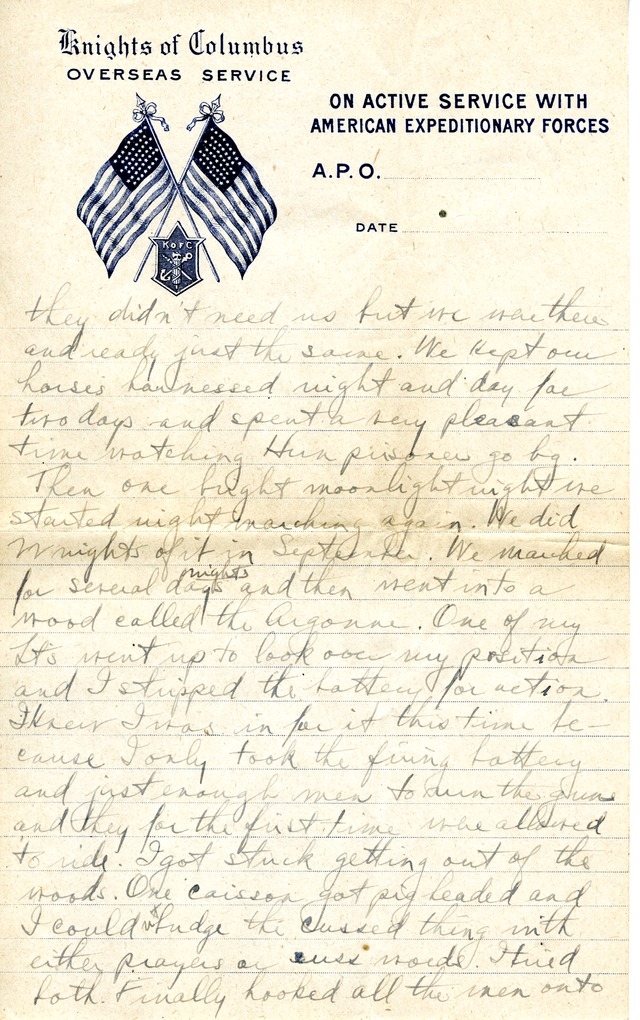 Knights of Columbus
OVERSEAS SERVICE
ON ACTIVE SERVICE WITH
AMERICAN EXPEDITIONARY FORCES
A.P.O.
DATE
K of C
they didn't need us but we were there
and ready just the same. We kept our
horses harnessed night and day for
two days and spent a very pleasant
time watching Hun prisoners go by.
Then one bright moonlight night we
started night marching again. We did
nights of it in September. We marched
nights
for several days and then went into a
wood called the Argonne. One of my
Lts went up to look over my position
and I stripped the battery for action.
I knew I was in for it this time be-
cause I only took the firing battery
and just enough men to run the guns
and they for the first time were allowed
to ride. I got stuck getting out of the
woods. One caisson got pigheaded and
I couldn't budge the cussed thing with
either prayers or cuss words. I tried
both. Finally hooked all the men onto